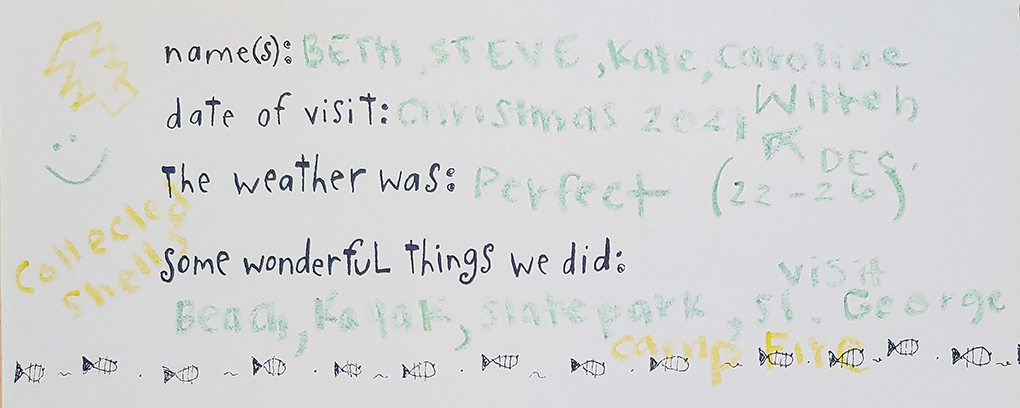 name(s): BETH, STEVE, Kate, Caroline
Witteh
date of visit: Christmas 2021
The weather was: Perfect (DEC. 22-26)
Collected
shells
some wonderful things we did:
visit
Beach, Kayak, state park, St. George
camp Fire